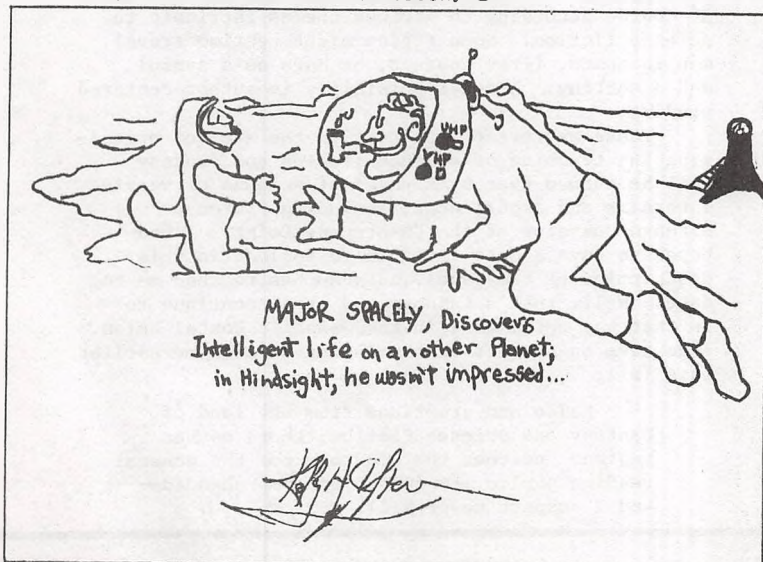 VHF
VHF
MAJOR SPACELY, Discovers
Intelligent life on another Planet;
in Hindsight, he wasn't impressed...